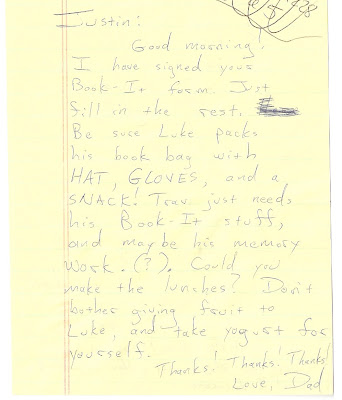 Justin:
Good morning!
I have signed your
Book-It form. Just
fill in the rest.
Be sure Luke packs
his book bag with
HAT, GLOVES, and a
SNACK! Trav. just needs
his Book-It stuff,
and maybe his memory
work. (?). Could you
make the lunches? Don't
bother giving fruit to
Luke, and take yogurt for
yourself.
Thanks! Thanks! Thanks!
Love, Dad